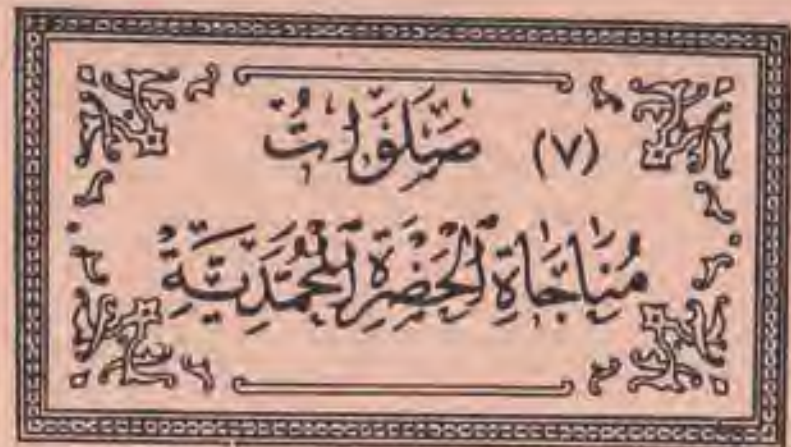 (٧) صَلَوَاتُ
مُنَاجَاةِ ٱلْحَضْرَةِ ٱلْمُحَمَّدِيَّةِ